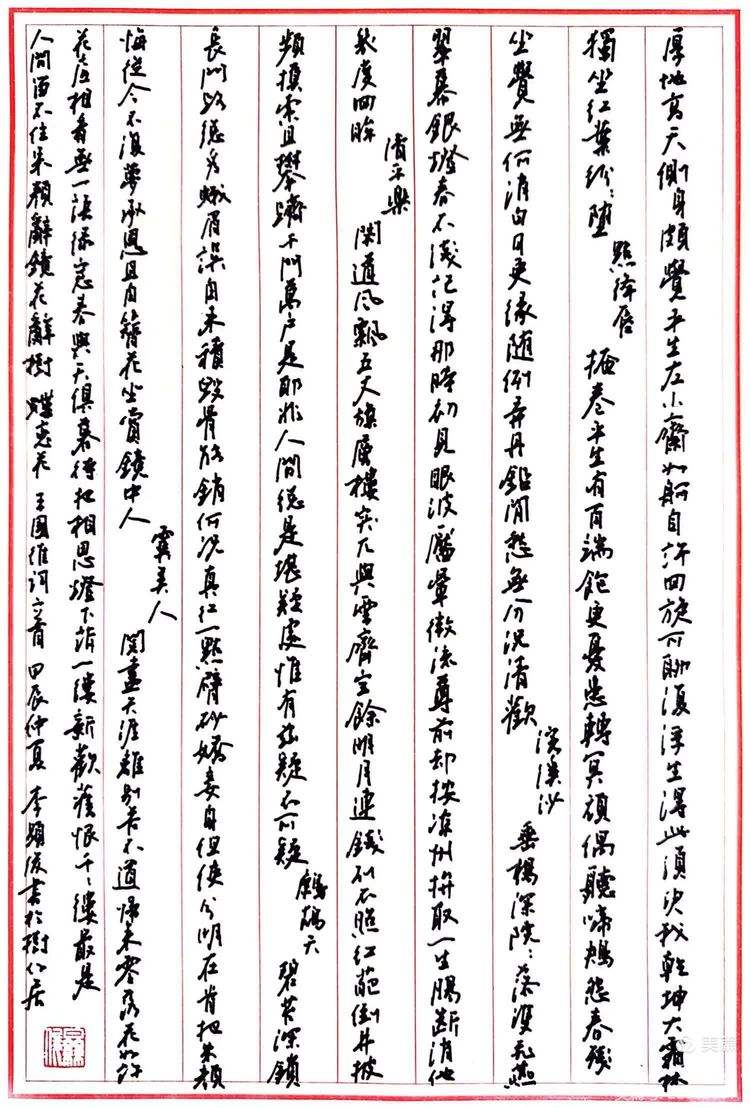 厚地高天側身頗覺平生左小齋如舸自許回旋可聊復浮生得此須臾我乾坤大霜林
獨坐紅葉紛紛墮 點絳唇 掩卷平生有百端飽更憂患轉冥頑偶聽啼鴂怨春殘
坐覺無何消白日更緣隨例弄丹鉛閒愁無分況清歡 浣溪沙 垂楊深院院落雙飛燕
翠幕銀燈春不淺記得那時初見眼波靨暈微流尊前却按涼州拚取一生腸斷消他
幾度回眸 清平樂 閣道風飄五丈旗層樓突兀與雲齊空餘明月連錢列不照紅葩倒井披
頻摸索且攀躋千門萬戶是耶非人間總是堪疑處惟有茲疑不可疑 鷓鴣天 碧苔深鎖
長門路總為蛾眉誤自來積毀骨能銷何況真紅一點臂砂嬌妾身但使分明在肯把朱顏
悔從今不復夢承恩且自簪花坐賞鏡中人 虞美人 閱盡天涯離別苦不道歸來零落花如許
花底相看無一語綠窗春與天俱暮待把相思燈下訴一縷新歡舊恨千千縷最是
人間留不住朱顏辭鏡花辭樹 蝶戀花 王國維詞六首 甲辰仲夏 李顯俊書於樹人居
美篇